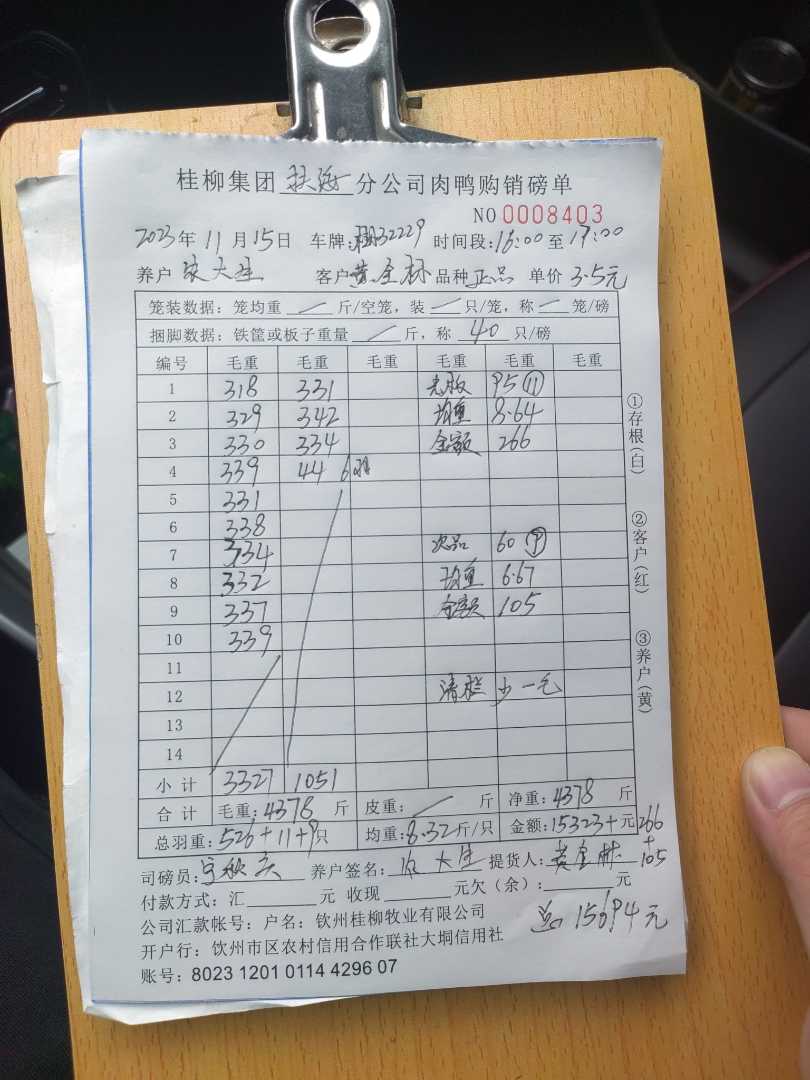 桂柳集团 扶海 分公司肉鸭购销磅单
NO 0008403
2023年11月15日 车牌: 32229 时间段:16:00至17:00
养户 大生 客户 黄全林 品种 正品 单价 3.5元
笼装数据: 笼均重 / 斤/空笼, 装 / 只/笼, 称 / 笼/磅
捆脚数据: 铁筐或板子重量 / 斤, 称 40 只/磅
编号 毛重 毛重 毛重 毛重 毛重 毛重
1 318 331 光板 95 (11)
2 329 342 均重 8.64
3 330 334 金额 266
4 339 44 6只
5 331
6 338
7 334 次品 60 (9)
8 332 均重 6.67
9 337 金额 105
10 339
11
12 清栏 少一毛
13
14
小计 3327 1051
合计 毛重: 4378 斤 皮重: / 斤 净重: 4378 斤
总羽重: 526+11+9只 均重: 8.32斤/只 金额: 15323+元266
+
105
司磅员: 养户签名: 大生 提货人: 黄全林
付款方式: 汇 元 收现 元欠(余): 元
公司汇款帐号: 户名: 钦州桂柳牧业有限公司
总 15694元
开户行: 钦州市区农村信用合作联社大垌信用社
账号: 8023 1201 0114 4296 07
①存根(白)
②客户(红)
③养户(黄)